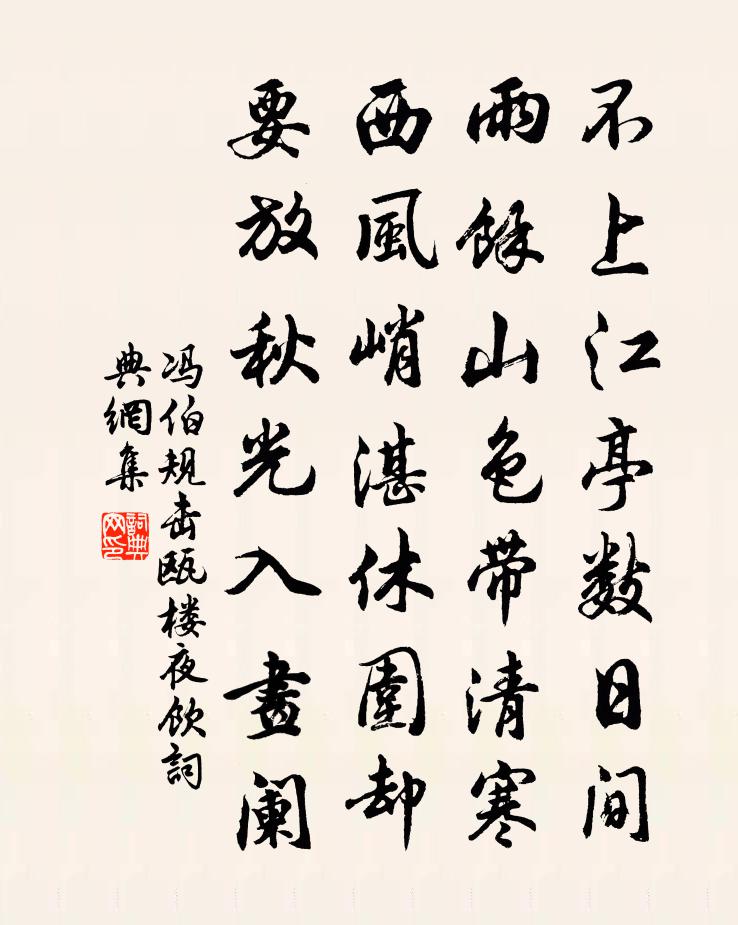 不上江亭數日间
雨餘山色带清寒
西風峭湛休圍却
要放秋光入畫阑
冯伯规击瓯楼夜饮詞
典網集
詞典
网印